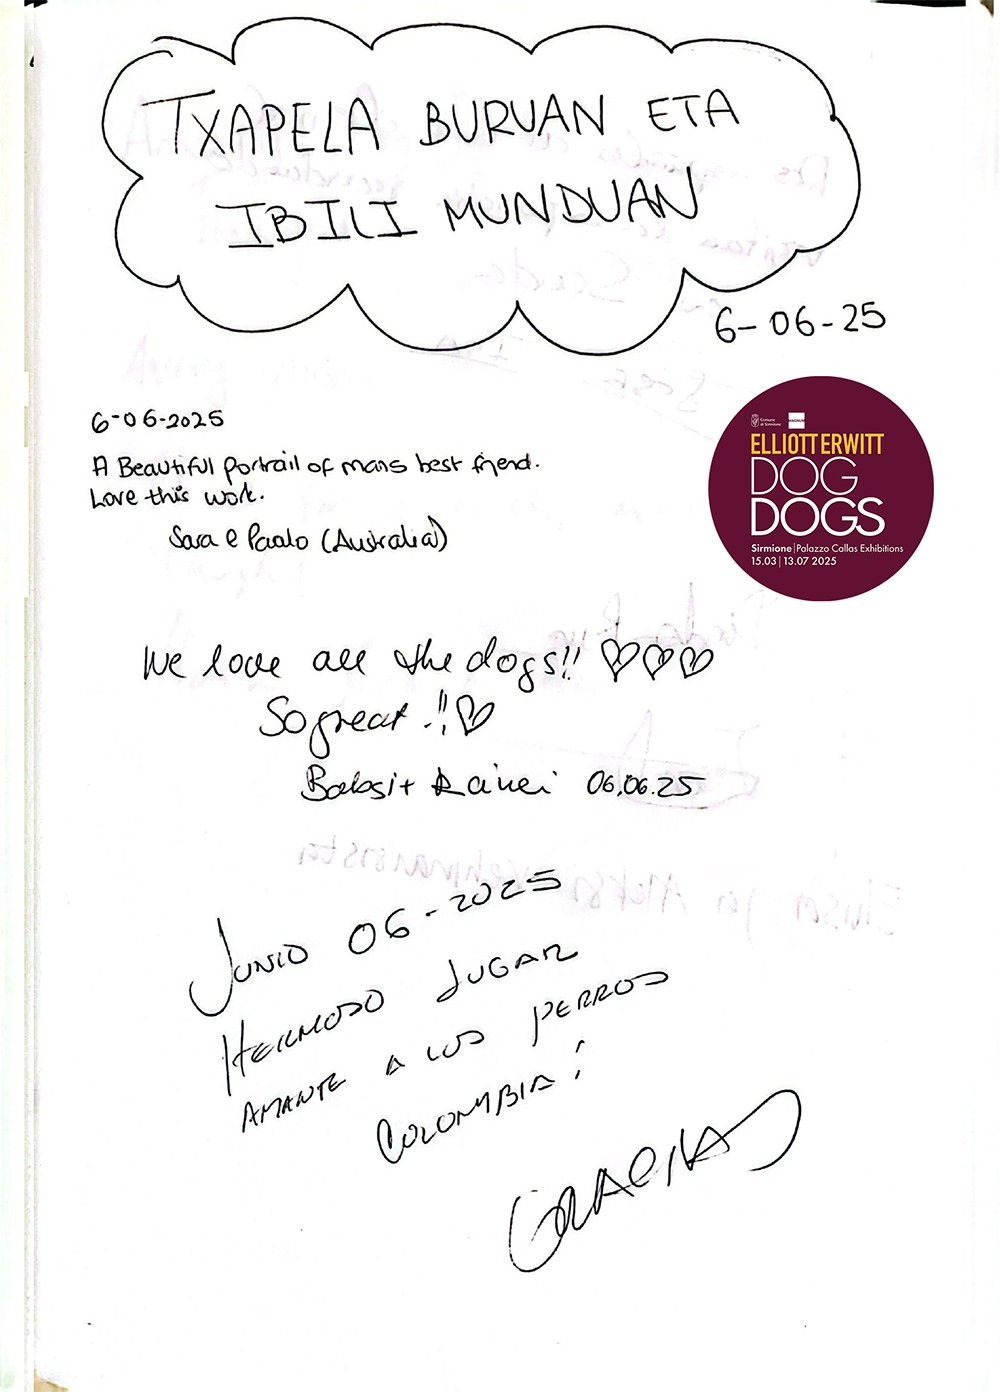 TXAPELA BURUAN ETA
IBILI MUNDUAN
6-06-25
6-06-2025
A Beautiful portrail of mans best friend.
Love this work.
Sara e Paolo (Australia)
Comune
di Sirmione
MAGNUM
ELLIOTT ERWITT
DOG
DOGS
Sirmione | Palazzo Callas Exhibitions
15.03 | 13.07 2025
We love all the dogs!! ♡♡♡
So great !!♡
06.06.25
JUNIO 06-2025
HERMOSO LUGAR
AMANTE A LOS PERROS
COLOMBIA!
GRACIAS